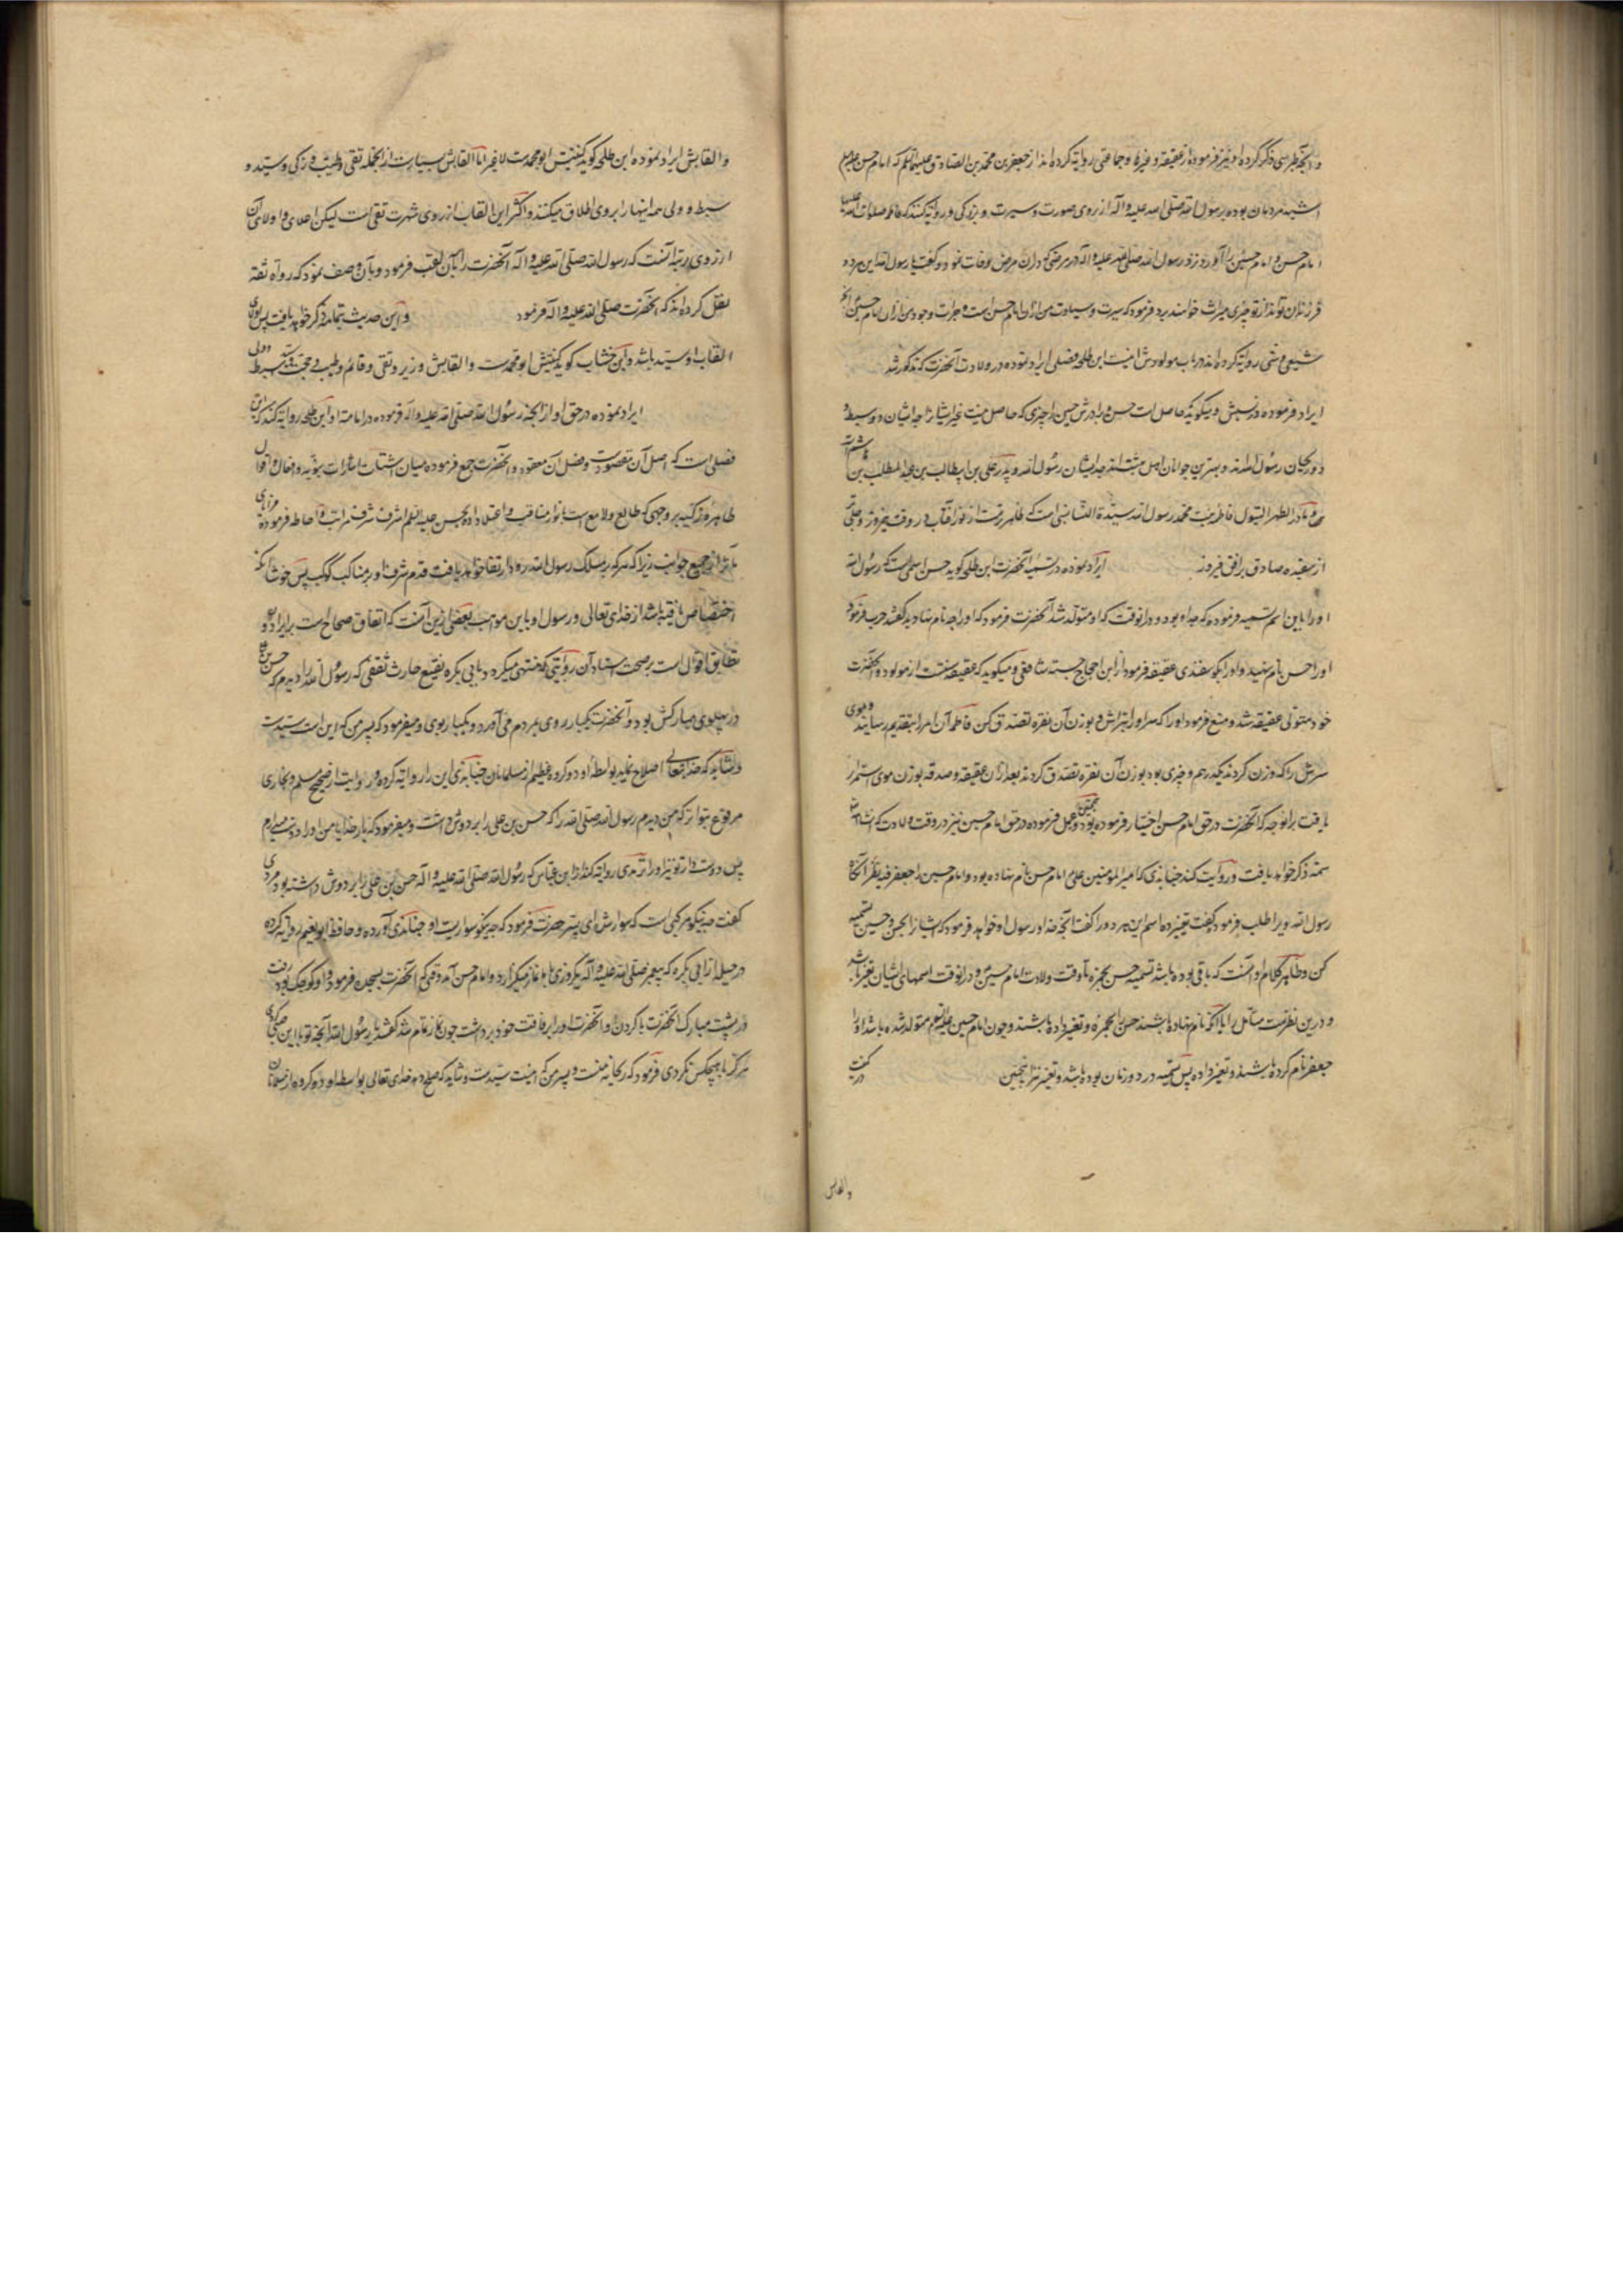 و آنچه طبرسی ذکر کرده او نیز فرموده از عقیقه و غیرها و جماعتی روایة کرده‌اند از جعفر بن محمد بن الصادق علیهما السلم که امام حسن علیه السلم
اشبه مردمان بوده برسول الله صلی الله علیه و آله از روی صورت و سیرت و بزرگی و روایة کنند که فاطمه صلوات الله علیها
امام حسن و امام حسین را آورد نزد رسول الله صلی الله علیه و آله در مرضی که در آن مرض وفات نمود و گفت یا رسول الله این هر دو
فرزندان تواند از تو چیزی میراث خواهند برد فرمود که سیرت و سیادت من از آن امام حسن است و جرات و جود من از آن امام حسین
شیعی و سنی روایة کرده‌اند در باب مولودش اینست ابن طلحه فصلی ایراد نموده در ولادت آنحضرت که مذکور شد
ایراد فرموده در نسبش و میگوید که حاصل است حسن و برادرش حسین را چیزی که حاصل نیست غیر ایشانرا چه ایشان دو سبط و
دو ریحان رسول الله‌اند و بهترین جوانان اهل بهشت‌اند جد ایشان رسول الله و پدر علی بن ابیطالب بن عبد المطلب بن هاشم است
و مادر الطهر البتول فاطمه بنت محمد رسول الله سیدة النسا نسبی است که ظاهرترست از نور آفتاب در وقت نیمروز و جلی
از سفیده صادق بر افق فیروز ایراد نموده در تسمیه آنحضرت ابن طلحه گوید حسن اسمی است که رسول الله
او را باین اسم تسمیه فرمود که جد او بود و در آنوقت که او متولد شد آنحضرت فرمود که او را چه نام نهادید گفتند حرب فرمود
او را حسن نام نهید و او را بگوسفندی عقیقه فرمود از این احتجاج جسته شافعی و میگوید که عقیقه سنتست از مولود و آنحضرت
خود متولی عقیقه شد و منع فرمود او را که سر او را بتراش و بوزن آن نقره تصدق کن فاطمه آن امر را بتقدیم رسانید و موی
سرش را که وزن کردند یکدرهم و چیزی بود بوزن آن نقره تصدق کردند بعد از آن عقیقه و صدقه بوزن موی استمرار
یافت بر آنوجه که آنحضرت در حق امام حسن اختیار فرموده بود و همچنین عمل فرموده در حق امام حسین نیز در وقت ولادت که انشاالله
سمة ذکر خواهد یافت و روایت کند جنابذی که امیر المومنین علی امام حسن نام نهاده بود و امام حسین را جعفر
رسول الله ویرا طلب فرمود گفت تغییر ده اسم این هر دو را گفت آنچه خدا و رسول او خواهد فرمود که ایشانرا بحسن و حسین تسمیه
کن و ظاهر کلام او آنست که باقی بوده باشد تسمیه حسن بحمزه تا وقت ولادت امام حسین و در آنوقت اسمهای ایشان تغیر یافته باشد
و درین نظرست متامل را یا آنکه نام نهاده باشند حسن را بحمزه و تغیر داده باشند و چون امام حسین علیه السلم متولد شده باشد او را
جعفر نام کرده باشند و تغیر داده پس تسمیه در دو زمان بوده باشد و تغیر نیز همچنین
والقابش
والقابش ایراد نموده ابن طلحه گوید کنیتش ابو محمدست لا غیر اما القابش بسیارست از آنجمله تقی و طیب و زکی و سید و
سبط و ولی همه اینها را بر وی اطلاق میکنند و اکثر این القاب از روی شهرت تقی است لیکن اعلای و اولای آن
از روی رتبه آنست که رسول الله صلی الله علیه و آله آنحضرت را بآن لقب فرمود و بآن وصف نمود که رواة ثقه
نقل کرده‌اند که آنحضرت صلی الله علیه و آله فرمود و این حدیث بتمامه ذکر خواهد یافت
القاب او سید باشد و ابن خشاب گوید کنیتش ابو محمدست والقابش وزیر و تقی و قائم و طیب و حجت و سید و سبط و ولی
ایراد نموده در حق او از آنچه رسول الله صلی الله علیه و آله فرموده در امامة او ابن طلحه روایة کند که این
فصلی است که اصل آن مقصودست و فضل آن معقود و آنحضرت جمع فرموده میان اشتات اشارات نبویه و افعال و اقوال
طاهره زکیه بر وجهی که طالع و لامع است انوار مناقب
از جمیع جوانب زیرا که هر که بر مسلک رسول الله رود ارتقا خواهد یافت قدم شرف او بر مناکب کوکب پس خوشا آنکه
اختصاص یافته باشد از خدای تعالی و رسول او باین مواهب بعضی ازین آنست که اتفاق صحاح است بر ایراد او و
تطابق اقوال است بر صحت اسناد آن روایتی که منتهی میگردد بابی بکره نفیع حارث ثقفی که رسول الله را دیدم که حسن بن علی
در پهلوی مبارکش بود و آنحضرت یکبار روی بمردم می‌آورد و یکبار بوی و میفرمود که پسر من که این است سیدست
و شاید که خدایتعالی اصلاح نماید بواسطه او دو گروه عظیم از مسلمانان جنابذی این را روایة کرده و روایت از صحیح مسلم و بخاری
مرفوع ببرا که من دیدم رسول الله صلی الله را که حسن بن علی را بر دوش داشت و میفرمود که بار خدایا من او را دوست میدارم
پس دوست دار تو نیز او را ترمذی روایة کند از ابن عباس که رسول الله صلی الله علیه و آله حسن بن علی را بر دوش داشته بود مردی
گفت چه نیکو مرکبی است که سوارش ای پسر حضرت فرمود که چه نیکو سواریست او جنابذی آورده و حافظ ابو نعیم روایة کرده
در حلیه از ابی بکره که پیغمبر صلی الله علیه و آله یکروزی با ما نماز میگزارد و امام حسن آمد وقتی که آنحضرت بسجده فرمود و او کوچک بود رفت
در پشت مبارک آنحضرت یا گردن و آنحضرت او را برفاقت خود برداشت چون نماز تمام شد گفتند یا رسول الله آنچه تو با این صبی کردی
هرگز با هیچکس نکردی فرمود که ریحانه منست و پسر من که اینست سیدست و شاید که صلح دهد خدای تعالی بواسطه او دو گروه از مسلمانان